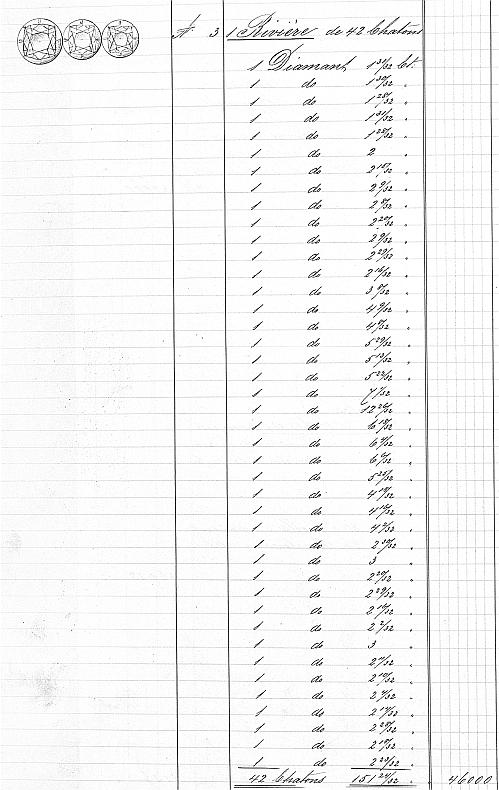 № 3 1 Rivière de 42 Chatons
1 Diamant 1 31/32 Ct.
1 do 1 30/32 "
1 do 1 28/32 "
1 do 1 31/32 "
1 do 1 28/32 "
1 do 2 "
1 do 2 18/32 "
1 do 2 9/32 "
1 do 2 8/32 "
1 do 2 20/32 "
1 do 2 9/32 "
1 do 2 29/32 "
1 do 2 16/32 "
1 do 3 8/32 "
1 do 4 9/32 "
1 do 4 8/32 "
1 do 5 29/32 "
1 do 5 12/32 "
1 do 5 22/32 "
1 do 7 7/32 "
1 do 12 26/32 "
1 do 6 18/32 "
1 do 6 4/32 "
1 do 6 6/32 "
1 do 5 25/32 "
1 do 4 19/32 "
1 do 4 16/32 "
1 do 4 2/32 "
1 do 2 30/32 "
1 do 3 "
1 do 2 20/32 "
1 do 2 29/32 "
1 do 2 19/32 "
1 do 2 2/32 "
1 do 3 "
1 do 2 11/32 "
1 do 2 10/32 "
1 do 2 4/32 "
1 do 2 17/32 "
1 do 2 28/32 "
1 do 2 19/32 "
1 do 2 23/32 "
42 Chatons 151 24/32 " " 46000